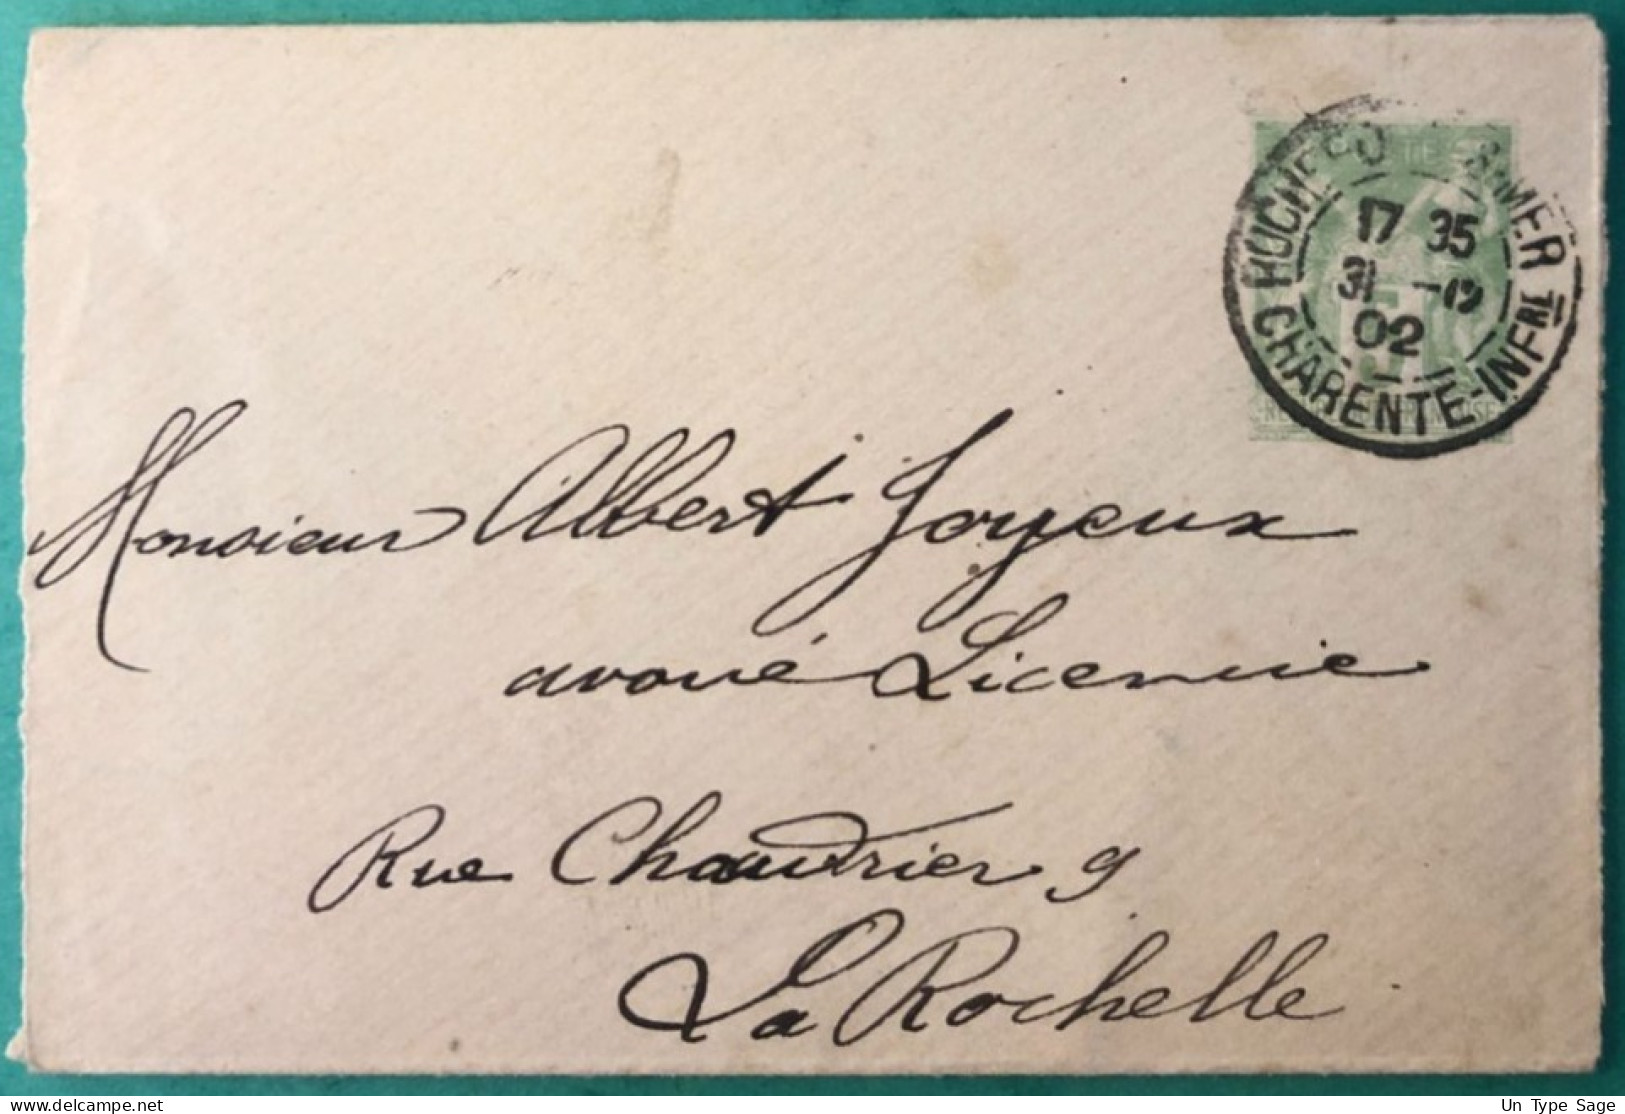 17 35
31 -12
02
CHARENTE-INFRE
Monsieur Albert Joyeux
avoué Licencié
Rue Chaudrier 9
La Rochelle
delcampe.net
Un Type Sage